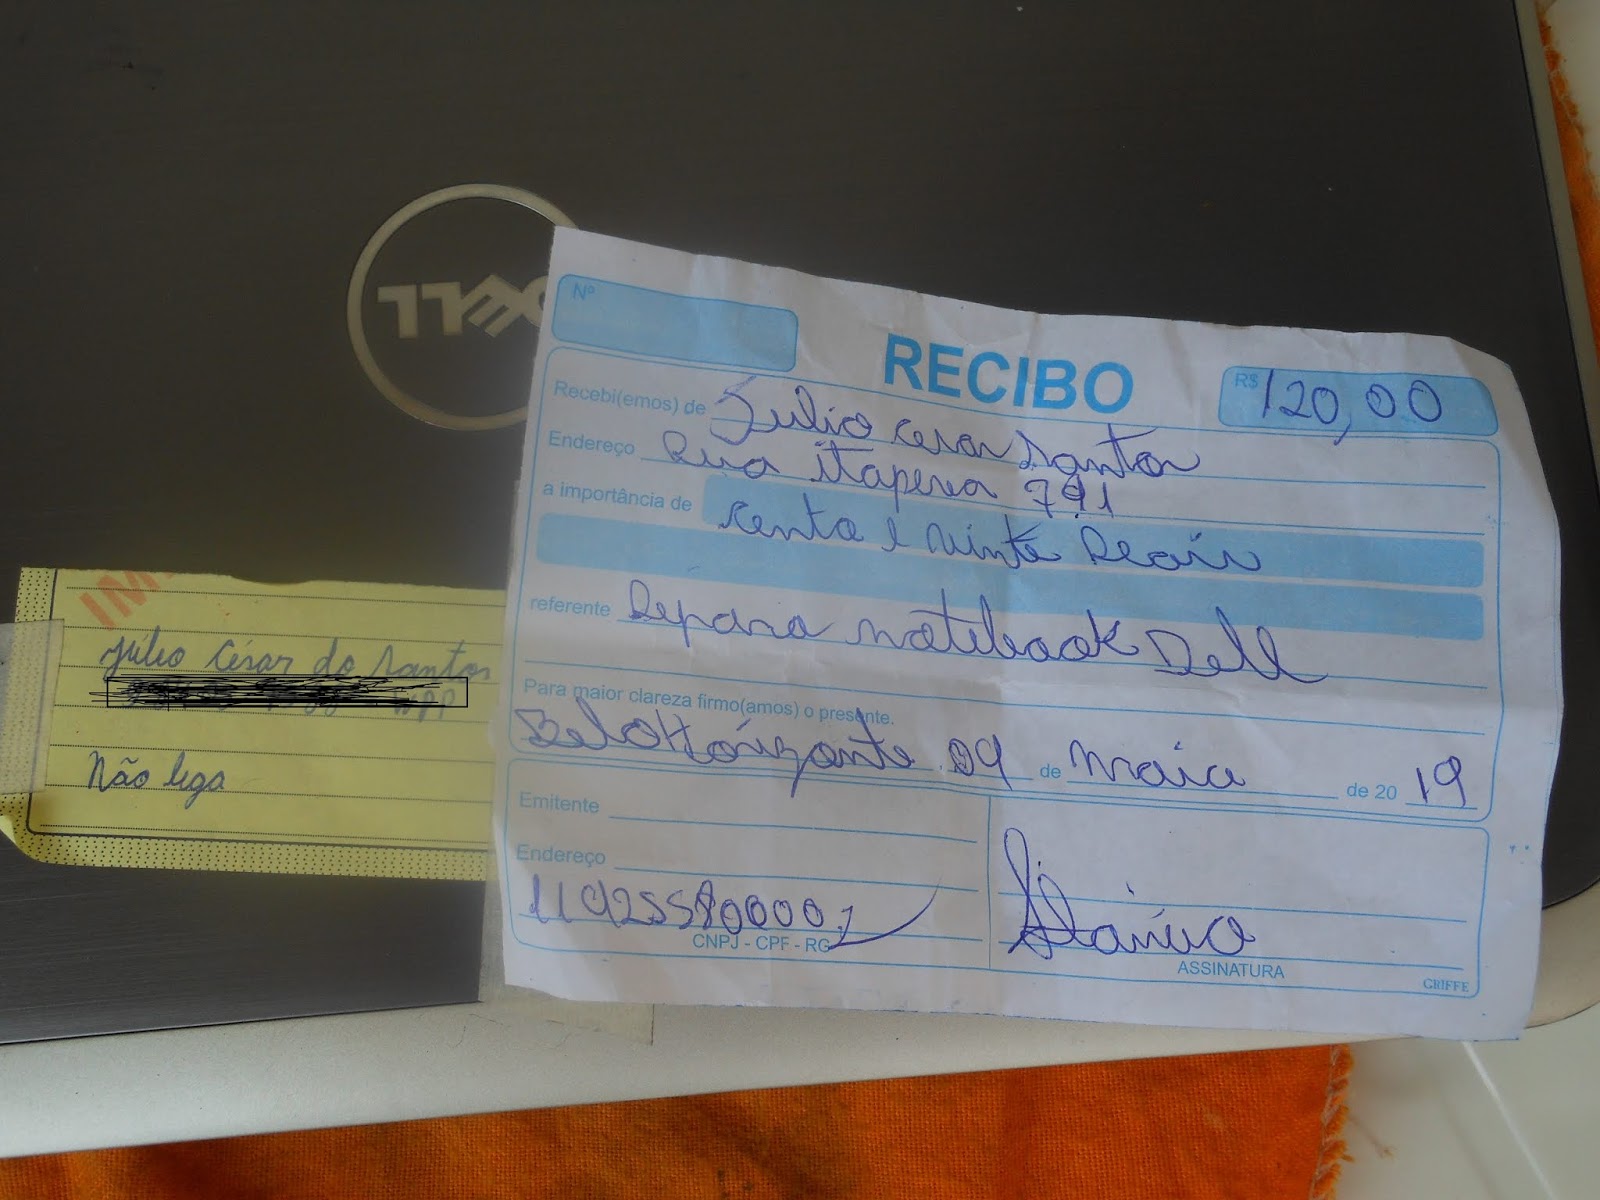 DELL
Nº
RECIBO
R$ 120,00
Recebi(emos) de Julio Cesar Santos
Endereço Rua itapeva 791
a importância de cento e vinte Reais
referente Reparo notebook Dell
Para maior clareza firmo(amos) o presente.
Belo Horizonte 09 de Maio de 2019
Emitente
Endereço
CNPJ - CPF - RG
ASSINATURA
GRIFFE
Júlio César do Santos
Não liga